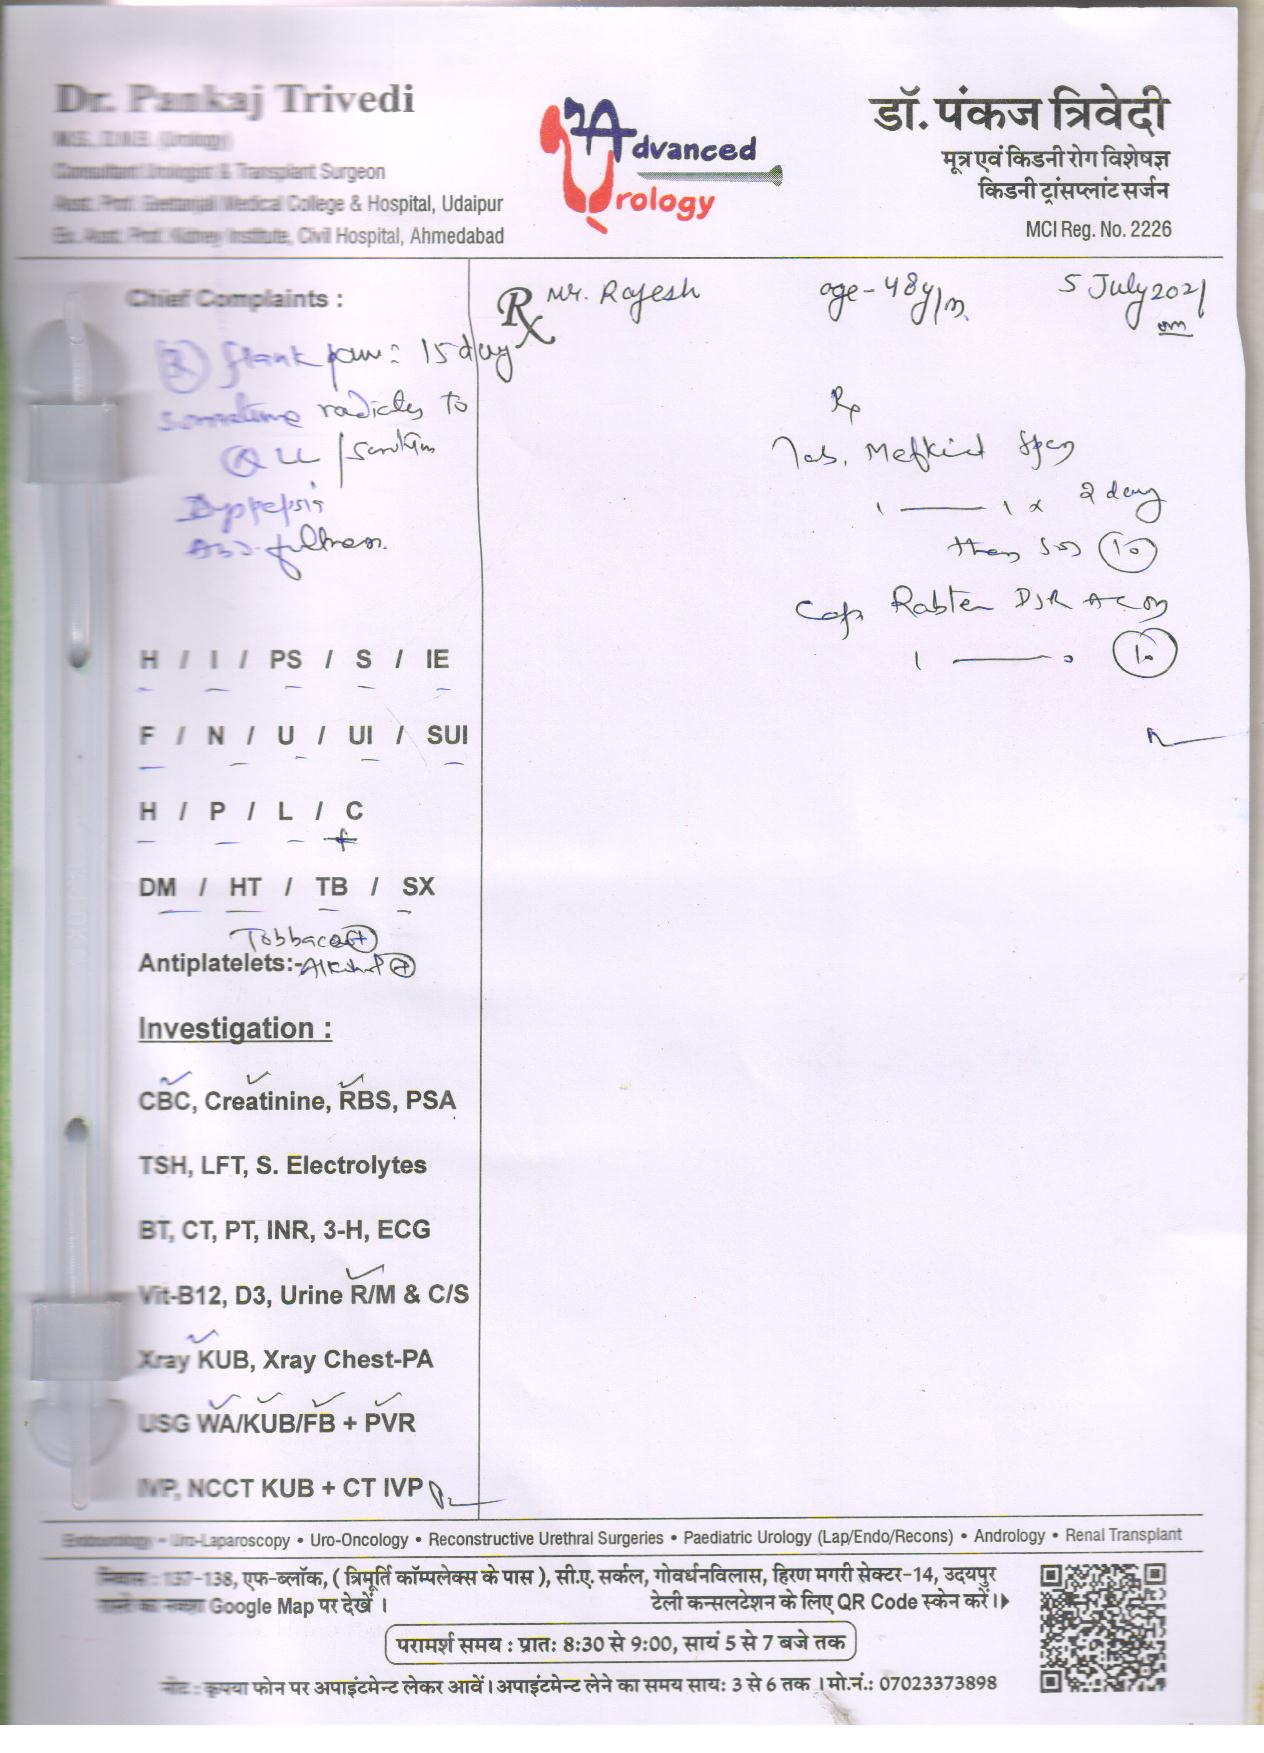 Dr. Pankaj Trivedi
M.S., D.N.B. (Urology)
Consultant Urologist & Transplant Surgeon
Asst. Prof. Geetanjali Medical College & Hospital, Udaipur
Ex. Asst. Prof. Kidney Institute, Civil Hospital, Ahmedabad
Advanced
Urology
डॉ. पंकज त्रिवेदी
मूत्र एवं किडनी रोग विशेषज्ञ
किडनी ट्रांसप्लांट सर्जन
MCI Reg. No. 2226
Chief Complaints :
Rx Mr. Rajesh age - 48y/m 5 July 2021
(R) flank pain : 15 day
sometime radiates to
(R) LL / scrotum
Dyspepsia
Abd. fullness.
Rx
Tab. Mefkind Spas
1 — 1 x 2 day
then SOS (10)
Cap Rabten DSR AC
1 — 0 (10)
H / I / PS / S / IE
F / N / U / UI / SUI
H / P / L / C
+
DM / HT / TB / SX
Tobbaco +
Antiplatelets:- Alcohol +
Investigation :
CBC, Creatinine, RBS, PSA
TSH, LFT, S. Electrolytes
BT, CT, PT, INR, 3-H, ECG
Vit-B12, D3, Urine R/M & C/S
Xray KUB, Xray Chest-PA
USG WA/KUB/FB + PVR
IVP, NCCT KUB + CT IVP
Endourology • Uro-Laparoscopy • Uro-Oncology • Reconstructive Urethral Surgeries • Paediatric Urology (Lap/Endo/Recons) • Andrology • Renal Transplant
निवास : 137-138, एफ-ब्लॉक, ( त्रिमूर्ति कॉम्पलेक्स के पास ), सी.ए. सर्कल, गोवर्धनविलास, हिरण मगरी सेक्टर-14, उदयपुर
रास्ते का नक्शा Google Map पर देखें । टेली कन्सलटेशन के लिए QR Code स्केन करें।
परामर्श समय : प्रातः 8:30 से 9:00, सायं 5 से 7 बजे तक
नोट : कृपया फोन पर अपाइंटमेन्ट लेकर आवें। अपाइंटमेन्ट लेने का समय सायः 3 से 6 तक । मो.नं.: 07023373898